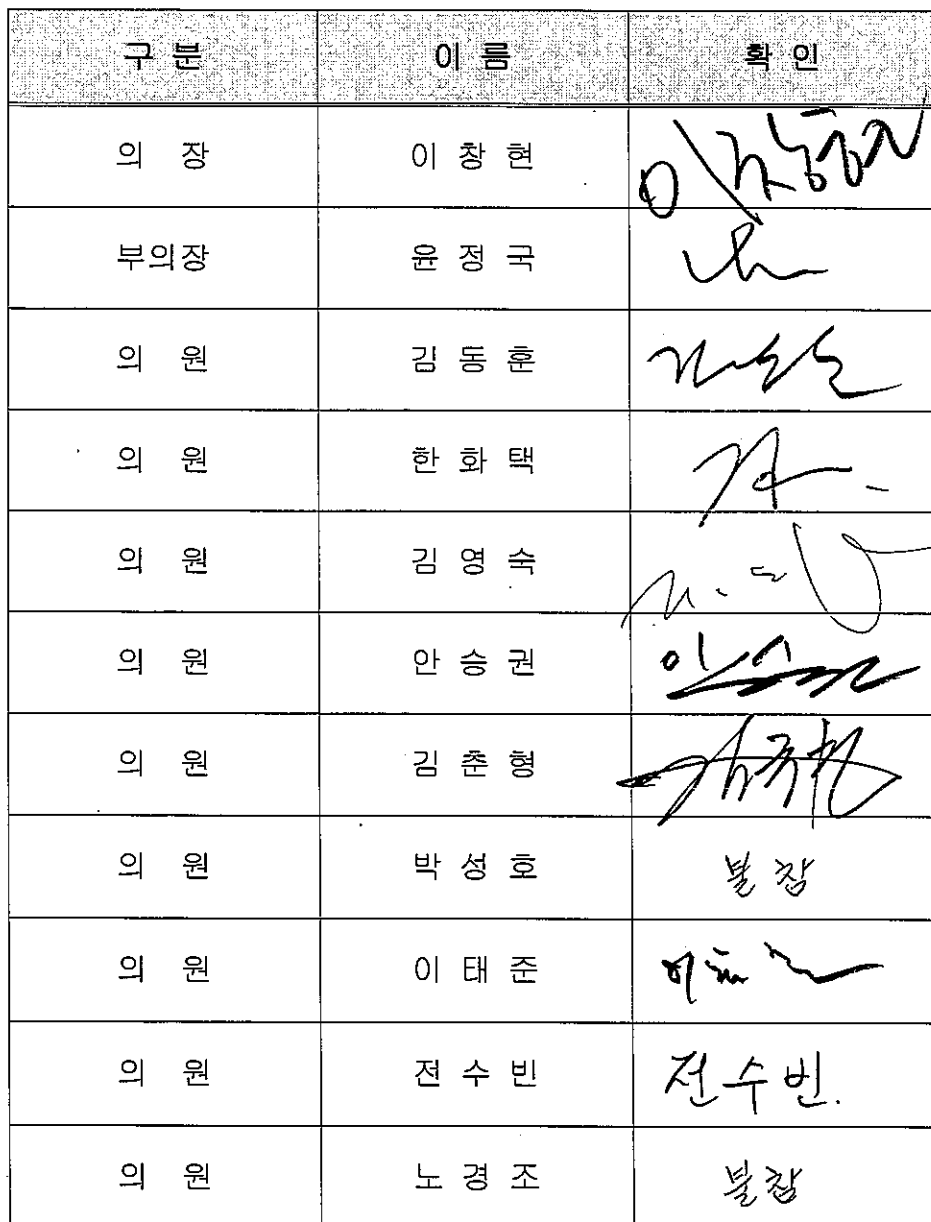 구 분 이 름 확 인
의 장 이 창 현
부의장 윤 정 국
의 원 김 동 훈
의 원 한 화 택
의 원 김 영 숙
의 원 안 승 권
의 원 김 춘 형
의 원 박 성 호 불참
의 원 이 태 준
의 원 전 수 빈 전수빈.
의 원 노 경 조 불참